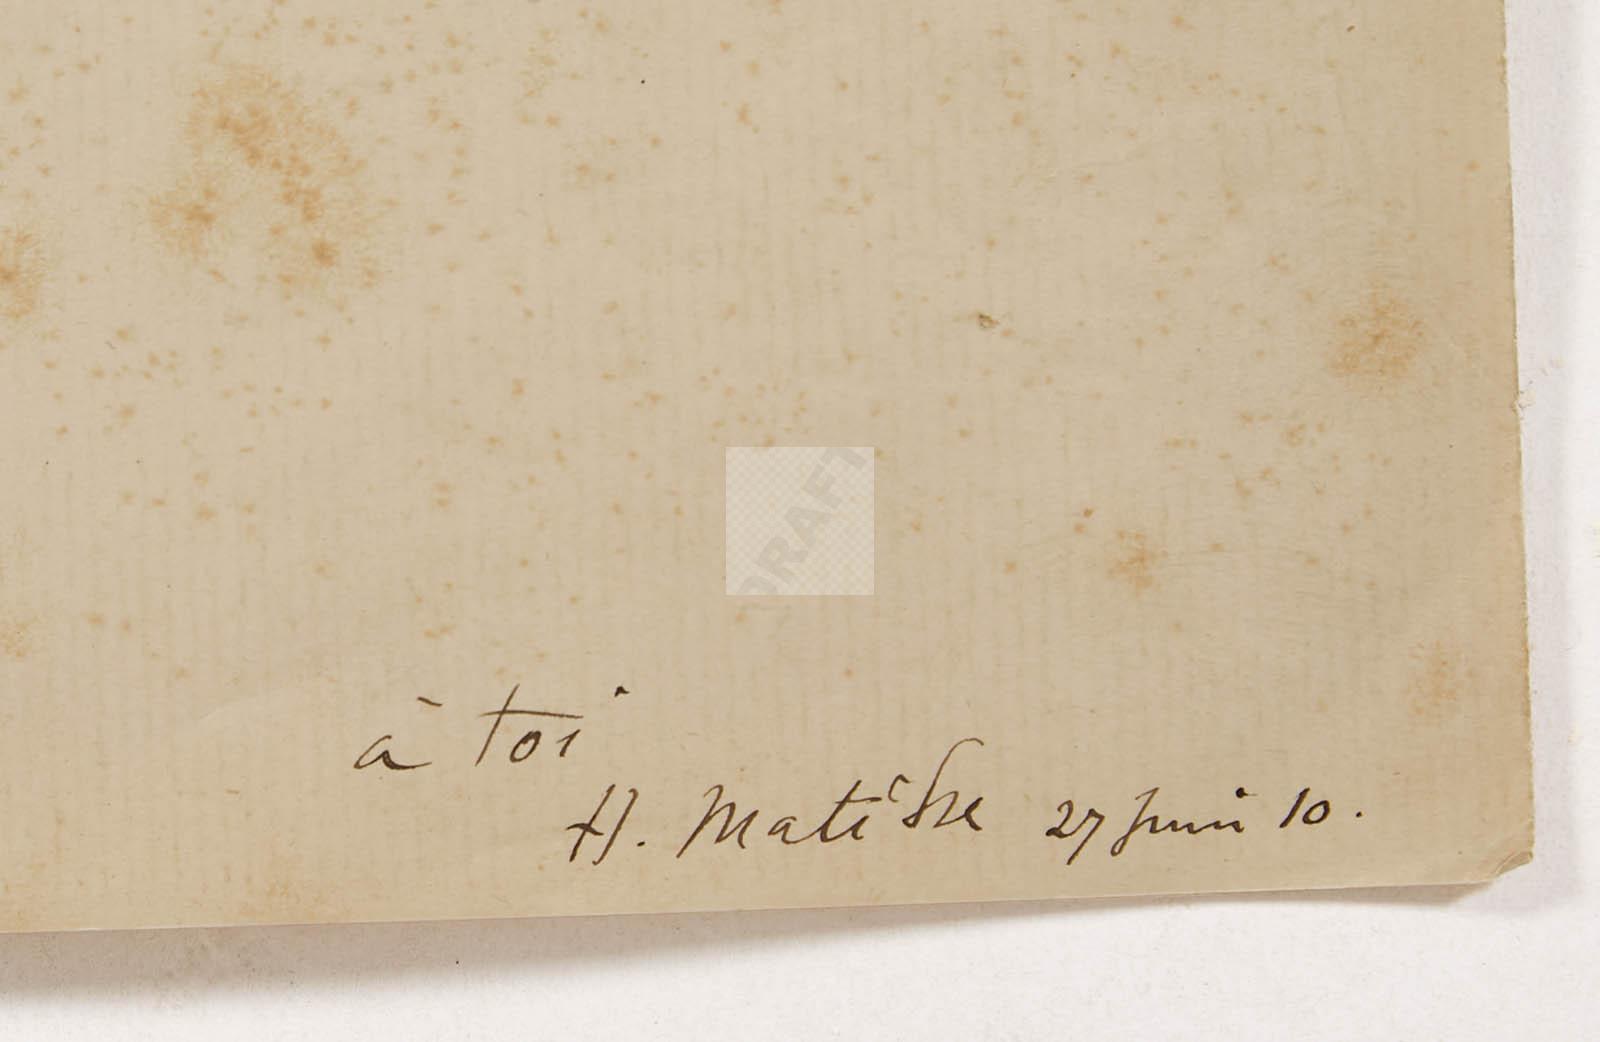 DRAFT
à toi
H. Matisse 27 juin 10.